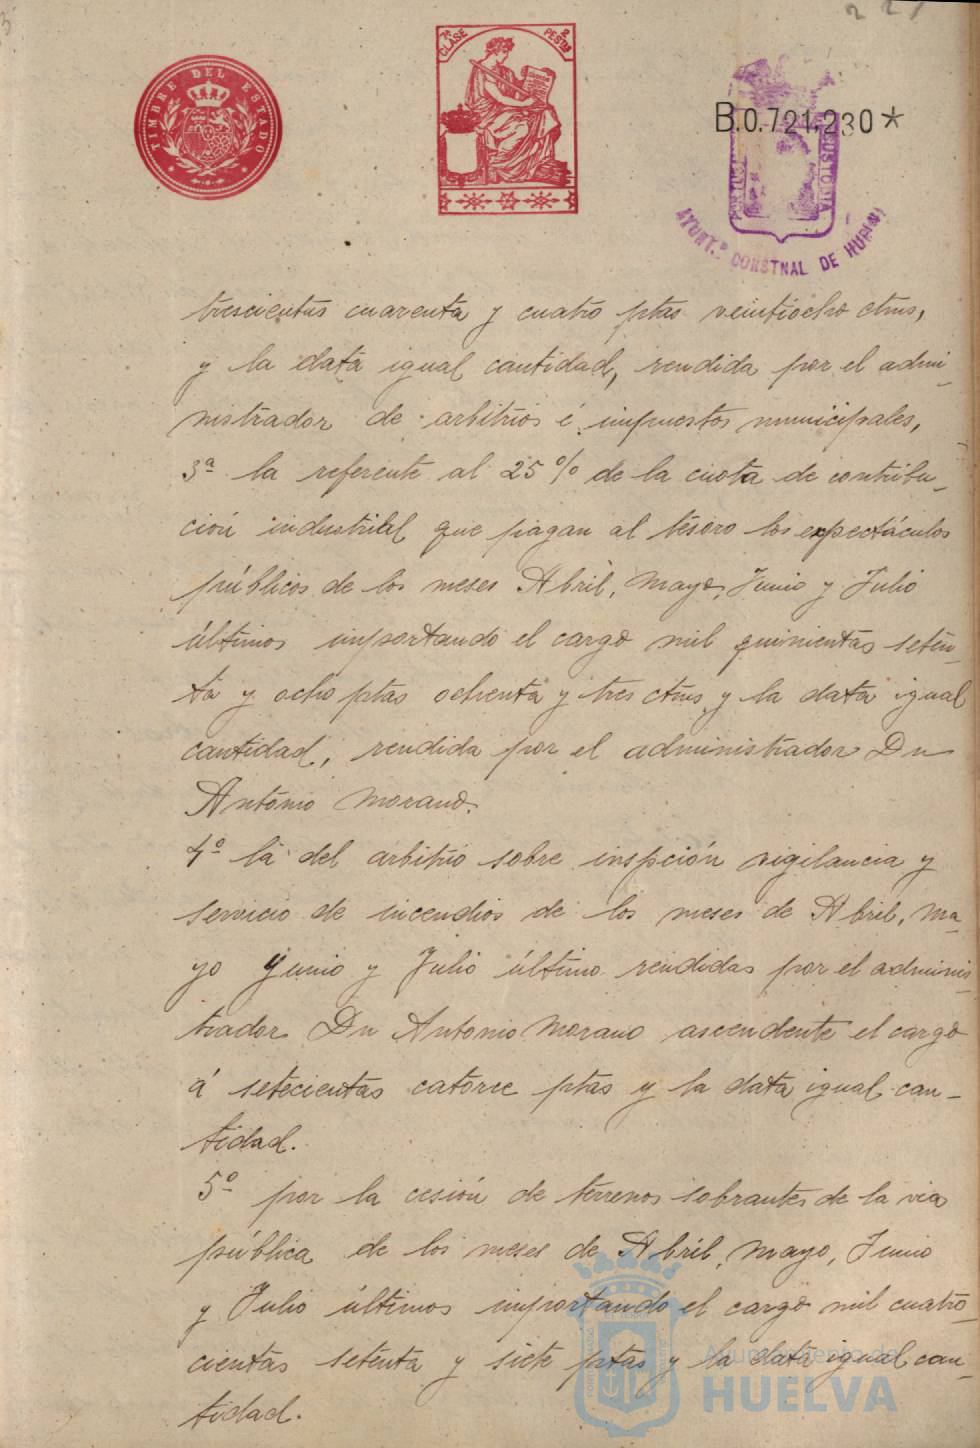 221
TIMBRE DEL ESTADO
7ª CLASE
2 PESTAS
B.0.721.230*
PORTUS MARIS ET TERRAE CUSTODIA
AYUNT.º CONSTNAL DE HUELVA
trescientas cuarenta y cuatro ptas veintiocho ctms,
y la data igual cantidad, rendida por el admi-
nistrador de arbitrios é impuestos municipales,
3ª la referente al 25 % de la cuota de contribu-
ción industrial que pagan al tesoro los expectáculos
públicos de los meses Abril, Mayo, Junio y Julio
últimos importando el cargo mil quinientas seten-
ta y ocho ptas ochenta y tres ctms y la data igual
cantidad, rendida por el administrador Dn
Antonio Morano.
4º la del arbitrio sobre inspción vigilancia y
servicio de incendios de los meses de Abril, Ma-
yo Junio y Julio último rendidas por el adminis-
trador Dn Antonio Morano ascendente el cargo
á setecientas catorce ptas y la data igual can-
tidad.
5º por la cesión de terrenos sobrantes de la via
pública de los meses de Abril, Mayo, Junio
y Julio últimos importando el cargo mil cuatro-
cientas setenta y siete ptas y la data igual can-
tidad.
Ayuntamiento de
HUELVA